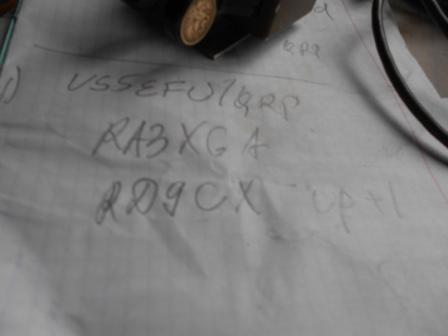 qrp
1) US5EFU/QRP
RA3XGA
RD9CX up+1